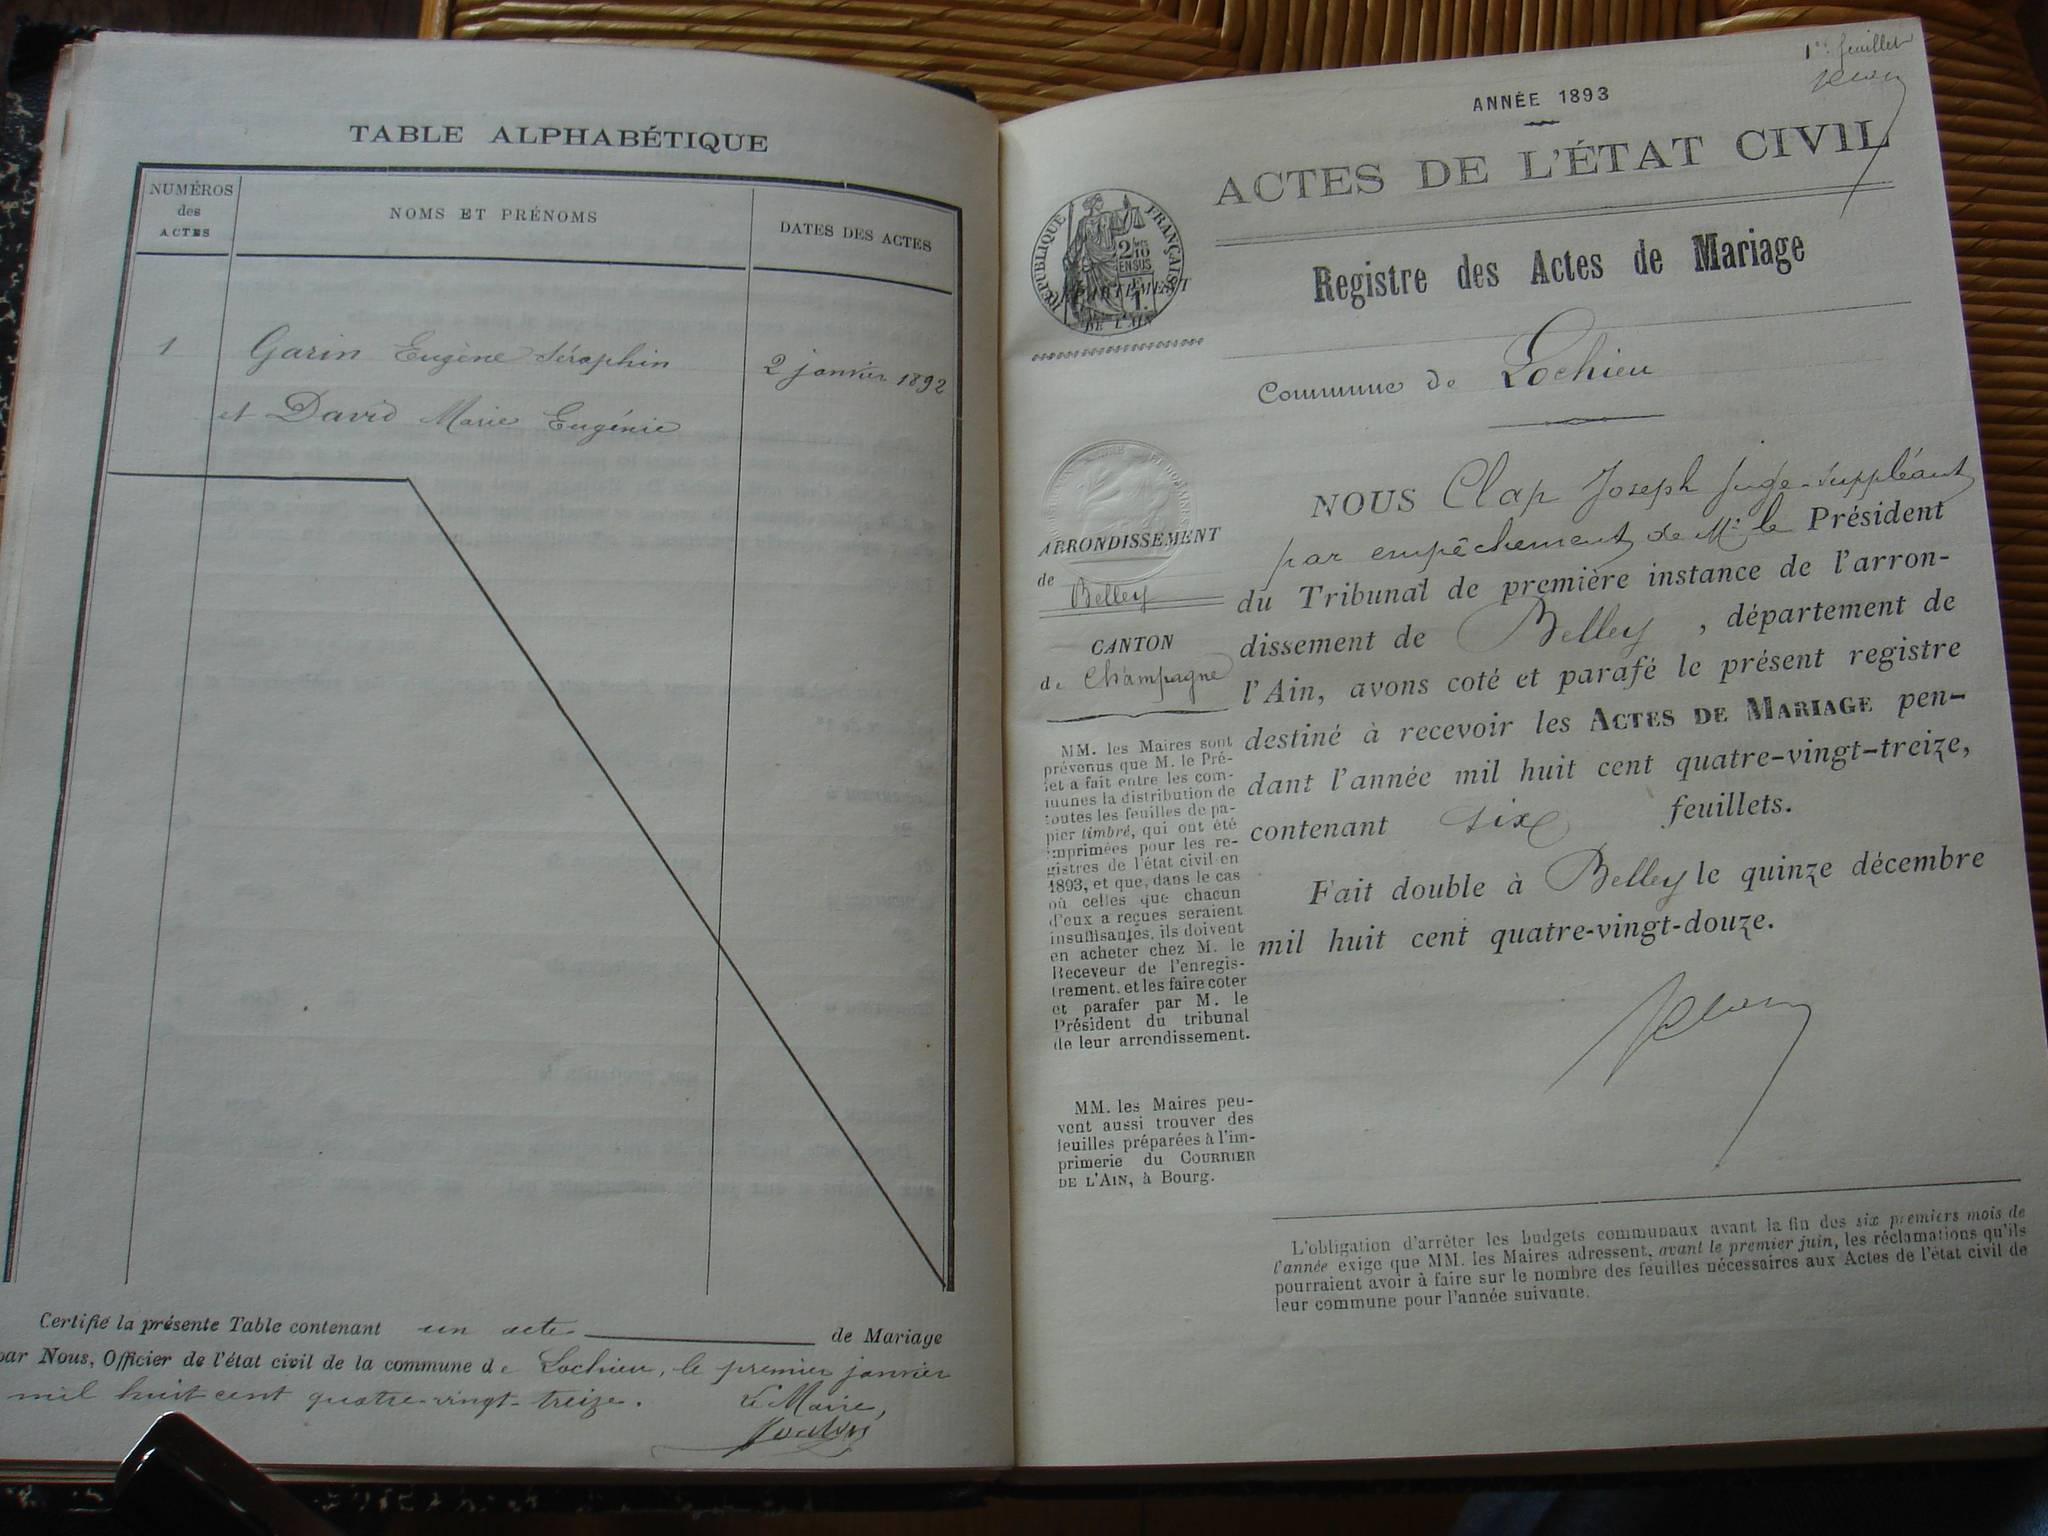 TABLE ALPHABÉTIQUE
NUMÉROS
des
ACTES
NOMS ET PRÉNOMS
DATES DES ACTES
1
Garin Eugène Séraphin
2 janvier 1892
et David Marie Eugénie
Certifié la présente Table contenant un acte de Mariage
par Nous, Officier de l'état civil de la commune de Lochieu, le premier janvier
mil huit cent quatre-vingt-treize. Le Maire,
1er feuillet
ANNÉE 1893
ACTES DE L'ÉTAT CIVIL
RÉPUBLIQUE FRANÇAISE
2/10
EN SUS
DÉPARTEMENT
DE L'AIN
Registre des Actes de Mariage
Commune de Lochieu
ARRONDISSEMENT
de Belley
CANTON
de Champagne
MM. les Maires sont
prévenus que M. le Pré-
fet a fait entre les com-
munes la distribution de
toutes les feuilles de pa-
pier timbré, qui ont été
imprimées pour les re-
gistres de l'état civil en
1893, et que, dans le cas
où celles que chacun
d'eux a reçues seraient
insuffisantes, ils doivent
en acheter chez M. le
Receveur de l'enregis-
trement, et les faire coter
et parafer par M. le
Président du tribunal
de leur arrondissement.
MM. les Maires peu-
vent aussi trouver des
feuilles préparées à l'im-
primerie du COURRIER
DE L'AIN, à Bourg.
NOUS Clap Joseph Juge-suppléant
par empêchement de Mr le Président
du Tribunal de première instance de l'arron-
dissement de Belley, département de
l'Ain, avons coté et parafé le présent registre
destiné à recevoir les ACTES DE MARIAGE pen-
dant l'année mil huit cent quatre-vingt-treize,
contenant six feuillets.
Fait double à Belley le quinze décembre
mil huit cent quatre-vingt-douze.
L'obligation d'arrêter les budgets communaux avant la fin des six premiers mois de
l'année exige que MM. les Maires adressent, avant le premier juin, les réclamations qu'ils
pourraient avoir à faire sur le nombre des feuilles nécessaires aux Actes de l'état civil de
leur commune pour l'année suivante.